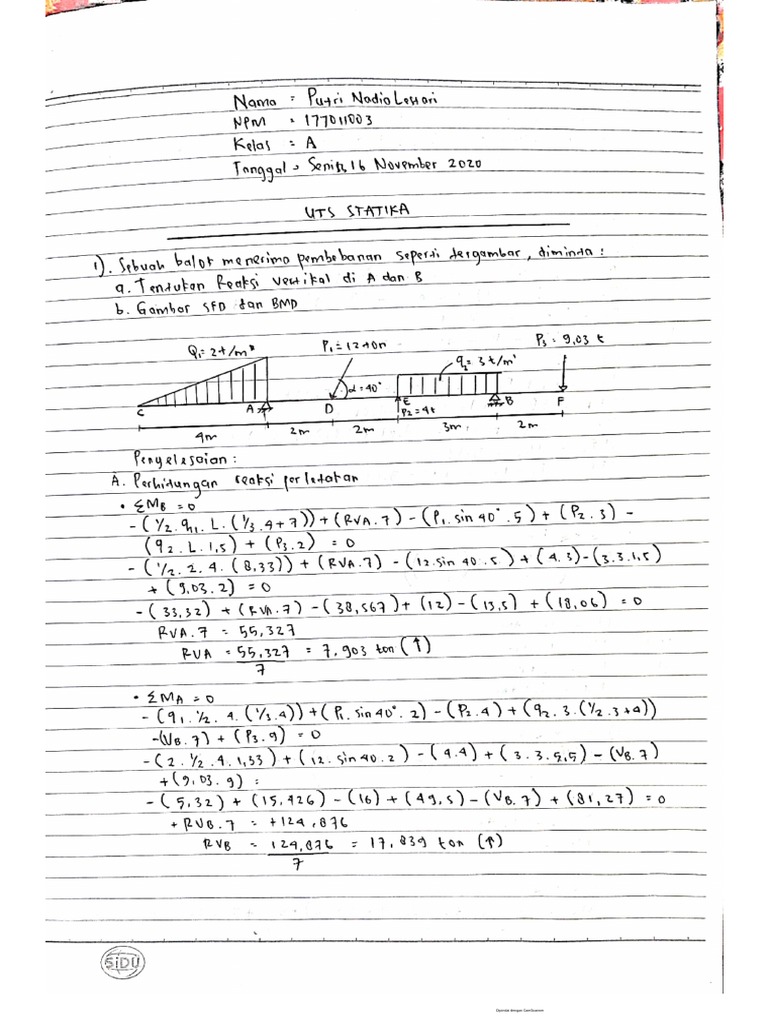 Nama : Putri Nadia Lestari
NPM = 177011003
Kelas : A
Tanggal : Senin, 16 November 2020
UTS STATIKA
1). Sebuah balok menerima pembebanan seperti tergambar, diminta :
a. Tentukan Reaksi vertikal di A dan B
b. Gambar SFD dan BMD
Q1 = 2 t/m'
P1 = 12 ton
q2 = 3 t/m'
P3 = 9,03 t
α = 40°
C A D E B F
P2 = 4t
4m 2m 2m 3m 2m
Penyelesaian :
A. Perhitungan reaksi perletakan
• ΣMB = 0
-(1/2 . q1 . L . (1/3 . 4 + 7)) + (RVA . 7) - (P1 . sin 40° . 5) + (P2 . 3) -
(q2 . L . 1,5) + (P3 . 2) = 0
-(1/2 . 2 . 4 . (8,33)) + (RVA . 7) - (12 . sin 40 . 5) + (4 . 3) - (3 . 3 . 1,5)
+ (9,03 . 2) = 0
-(33,32) + (RVA . 7) - (38,567) + (12) - (13,5) + (18,06) = 0
RVA . 7 = 55,327
RVA = 55,327 = 7,903 ton (↑)
7
• ΣMA = 0
-(q1 . 1/2 . 4 . (1/3 . 4)) + (P1 . sin 40° . 2) - (P2 . 4) + (q2 . 3 . (1/2 . 3 + 4))
-(VB . 7) + (P3 . 9) = 0
-(2 . 1/2 . 4 . 1,33) + (12 . sin 40 . 2) - (4 . 4) + (3 . 3 . 5,5) - (VB . 7)
+ (9,03 . 9) =
-(5,32) + (15,426) - (16) + (49,5) - (VB . 7) + (81,27) = 0
+ RVB . 7 = +124,876
RVB = 124,876 = 17,839 ton (↑)
7
SiDU
Dipindai dengan CamScanner